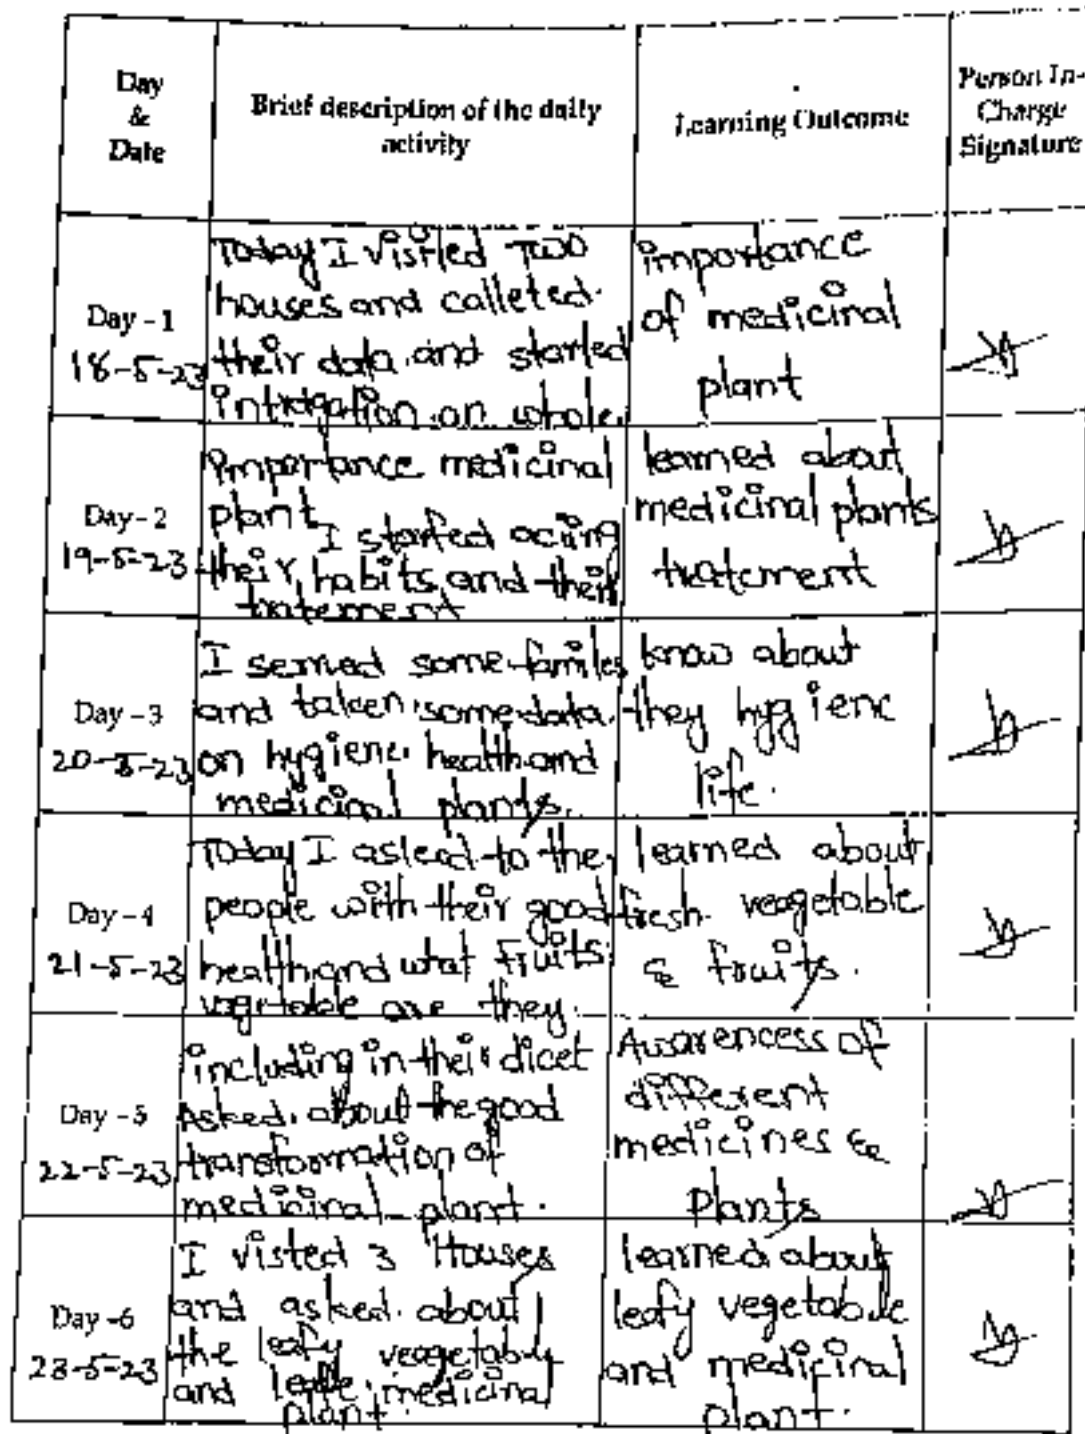 Day
&
Date
Brief description of the daily
activity
Learning Outcome
Person In-
Charge
Signature
Day - 1
18-5-23
Today I visited Two
houses and calleted
their data and started
on whole
importance
of medicinal
plant
Day - 2
19-5-23
importance medicinal
plant
I started
their habits and their
tratement
learned about
medicinal plants
tratement
Day - 3
20-5-23
I some familes
and taken some data
on hygiene health and
medicinal plants.
know about
they hygienc
life.
Day - 4
21-5-23
Today I asked to the
people with their good
health and what Fruits
vegetable are they
learned about
fresh veagetable
& fruits.
Day - 5
22-5-23
including in their dicet
Asked about the good
transformation of
medicinal plant.
Awarencess of
different
medicines &
Plants
Day - 6
23-5-23
I visted 3 Houses
and asked about
the leafy
and medicinal
plant.
learned about
leafy vegetable
and medicinal
plant.